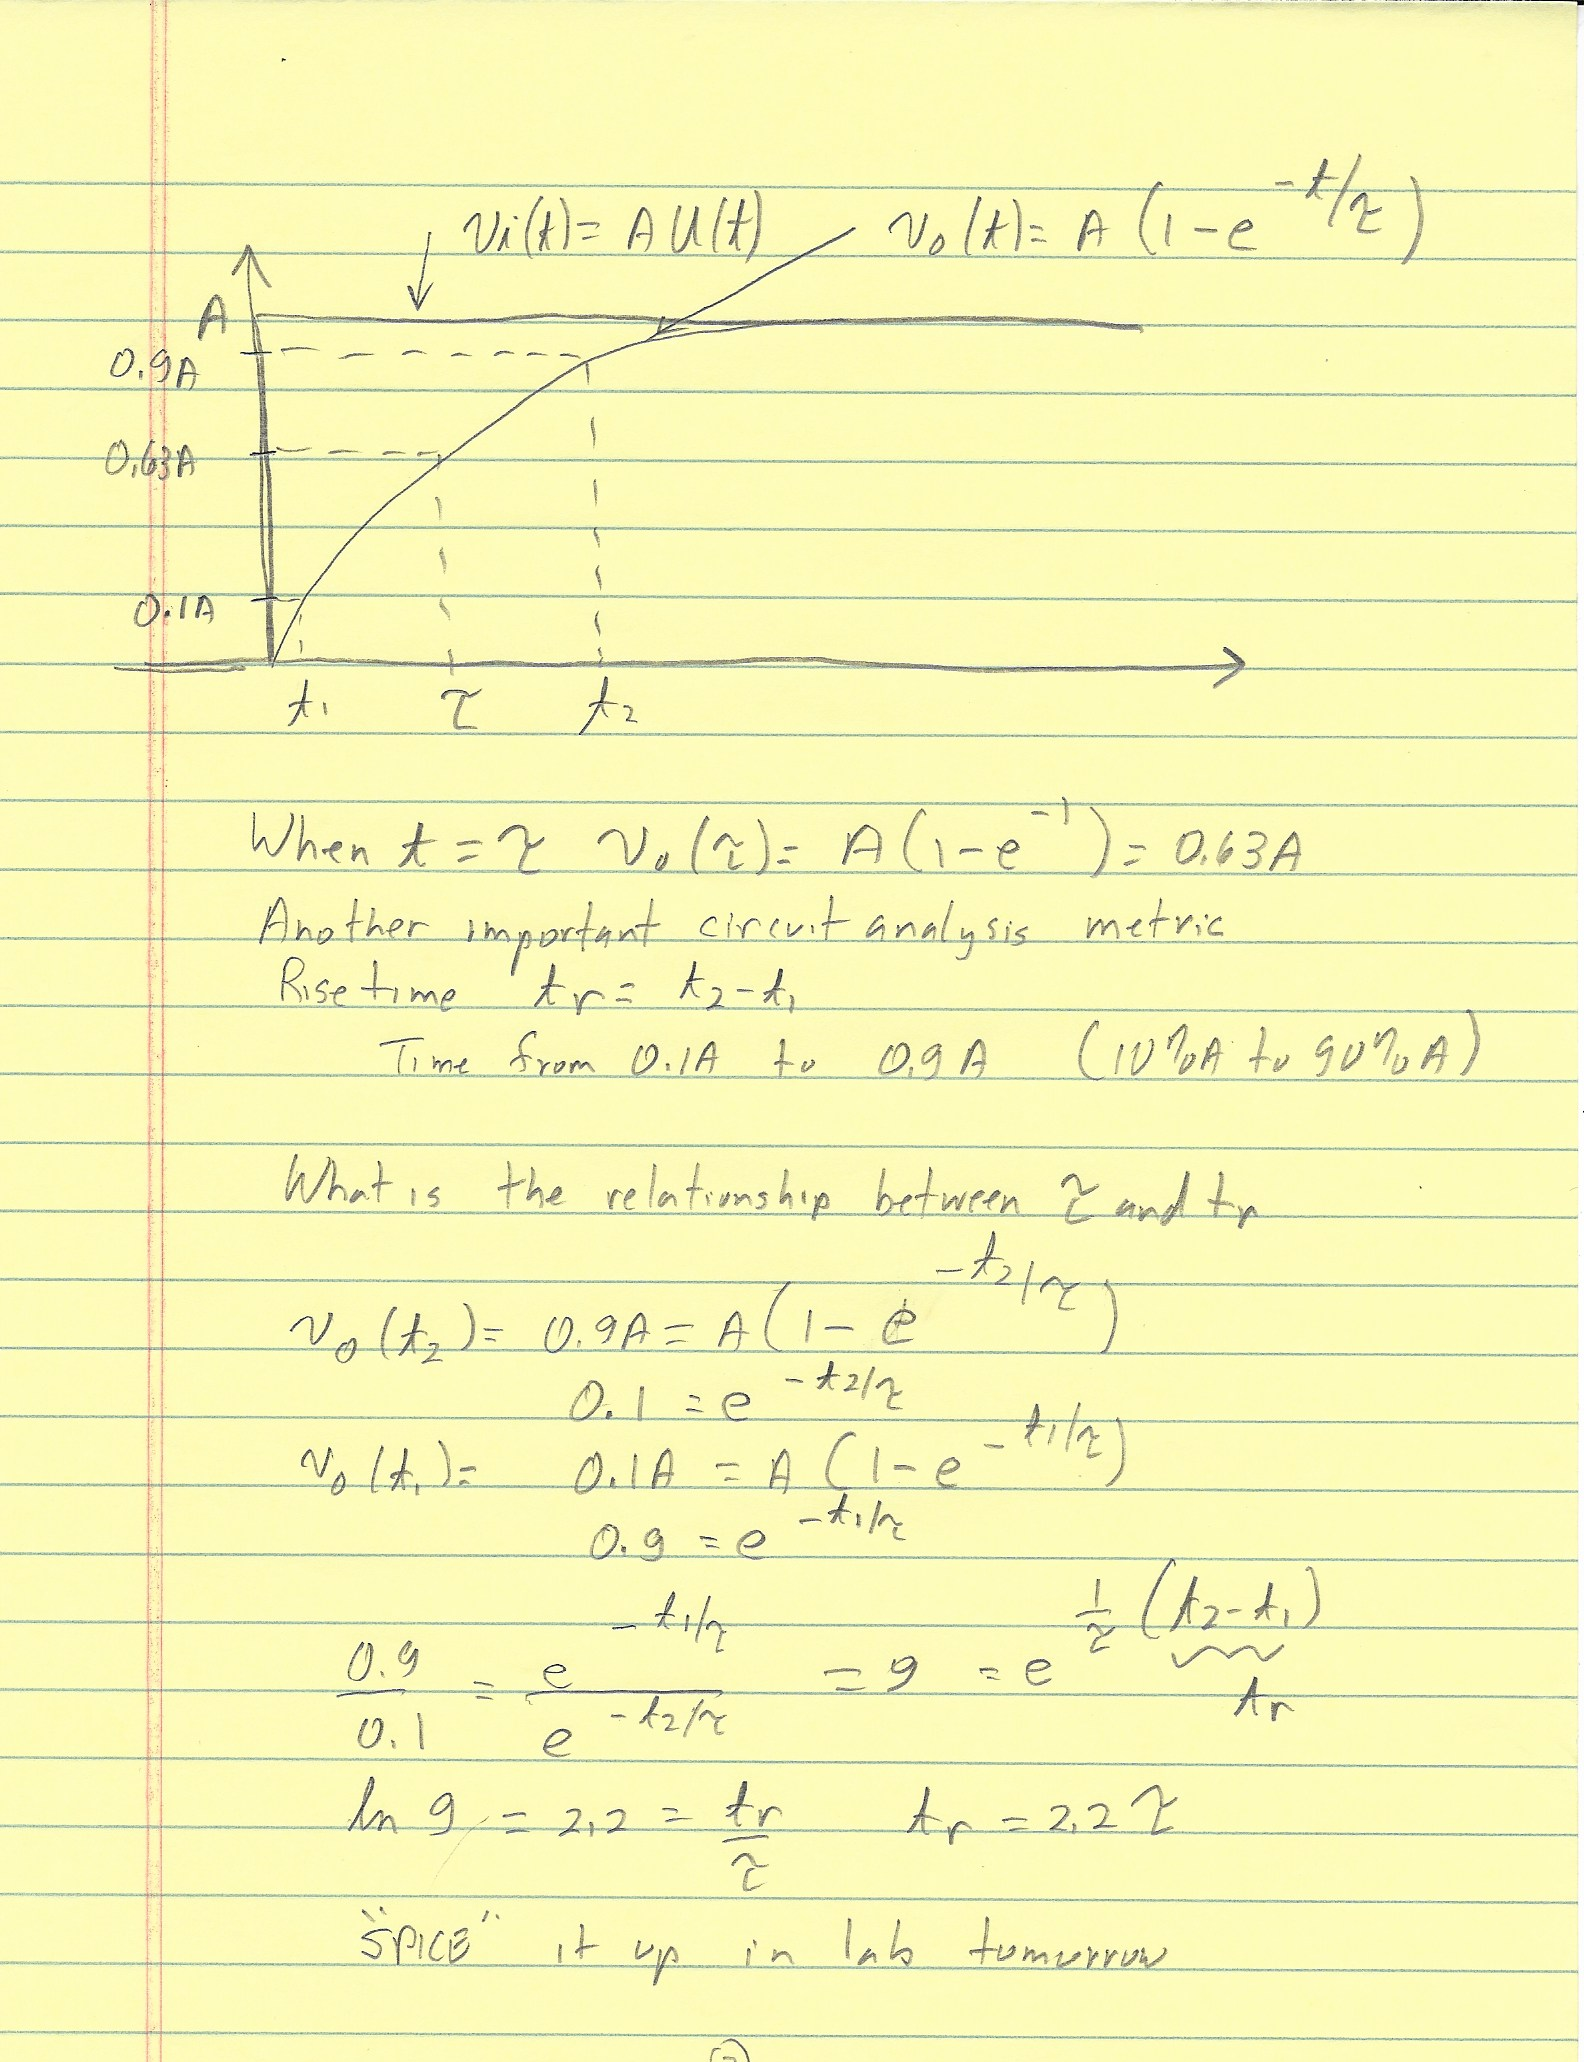 vi(t)= A u(t)
vo(t)= A (1-e^-t/τ)
A
0.9A
0.63A
0.1A
t1 τ t2
When t = τ vo(τ)= A(1-e^-1)= 0.63A
Another important circuit analysis metric
Rise time tr= t2-t1
Time from 0.1A to 0.9A (10%A to 90%A)
What is the relationship between τ and tr
vo(t2)= 0.9A = A(1- e^-t2/τ)
0.1 = e^-t2/τ
vo(t1)= 0.1A = A (1-e^-t1/τ)
0.9 = e^-t1/τ
0.9/0.1 = e^-t1/τ / e^-t2/τ = 9 = e^1/τ (t2-t1)
tr
ln 9 = 2.2 = tr/τ tr = 2.2 τ
"SPICE" it up in lab tomorrow